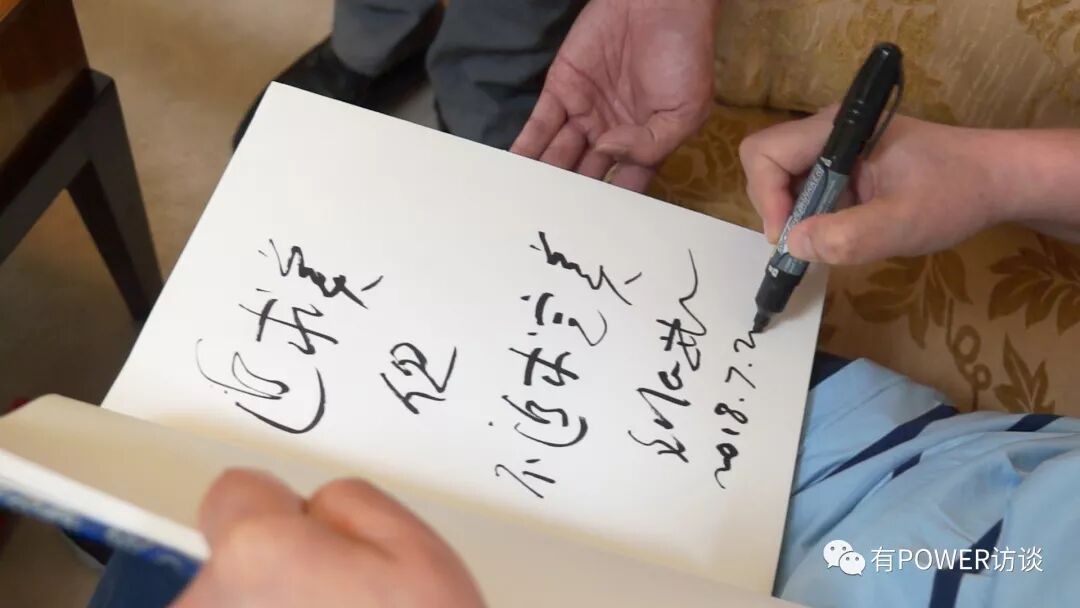 追求美
但
不追求完美
2018.7.2
有POWER访谈